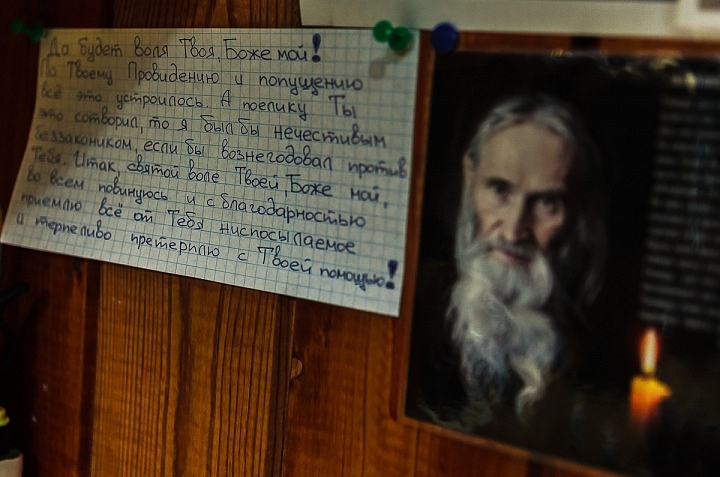 Да будет воля Твоя, Боже мой!
По Твоему Провидению и попущению
всё это устроилось. А поелику Ты
это сотворил, то я был бы нечестивым
беззакоником, если бы вознегодовал против
Тебя. Итак святой воле Твоей, Боже мой,
во всем повинуюсь и с благодарностью
приемлю всё от Тебя ниспосылаемое
и терпеливо претерплю с Твоей помощью!